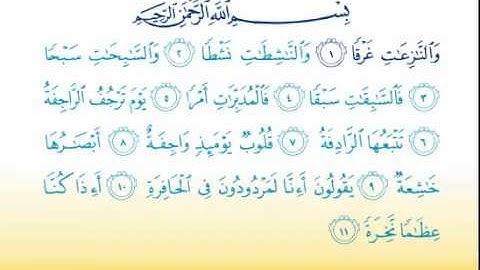 بِسْمِ اللَّهِ الرَّحْمَٰنِ الرَّحِيمِ
وَالنَّازِعَاتِ غَرْقًا ١ وَالنَّاشِطَاتِ نَشْطًا ٢ وَالسَّابِحَاتِ سَبْحًا
٣ فَالسَّابِقَاتِ سَبْقًا ٤ فَالْمُدَبِّرَاتِ أَمْرًا ٥ يَوْمَ تَرْجُفُ الرَّاجِفَةُ
٦ تَتْبَعُهَا الرَّادِفَةُ ٧ قُلُوبٌ يَوْمَئِذٍ وَاجِفَةٌ ٨ أَبْصَارُهَا
خَاشِعَةٌ ٩ يَقُولُونَ أَءِنَّا لَمَرْدُودُونَ فِي الْحَافِرَةِ ١٠ أَءِذَا كُنَّا
عِظَامًا نَّخِرَةً ١١